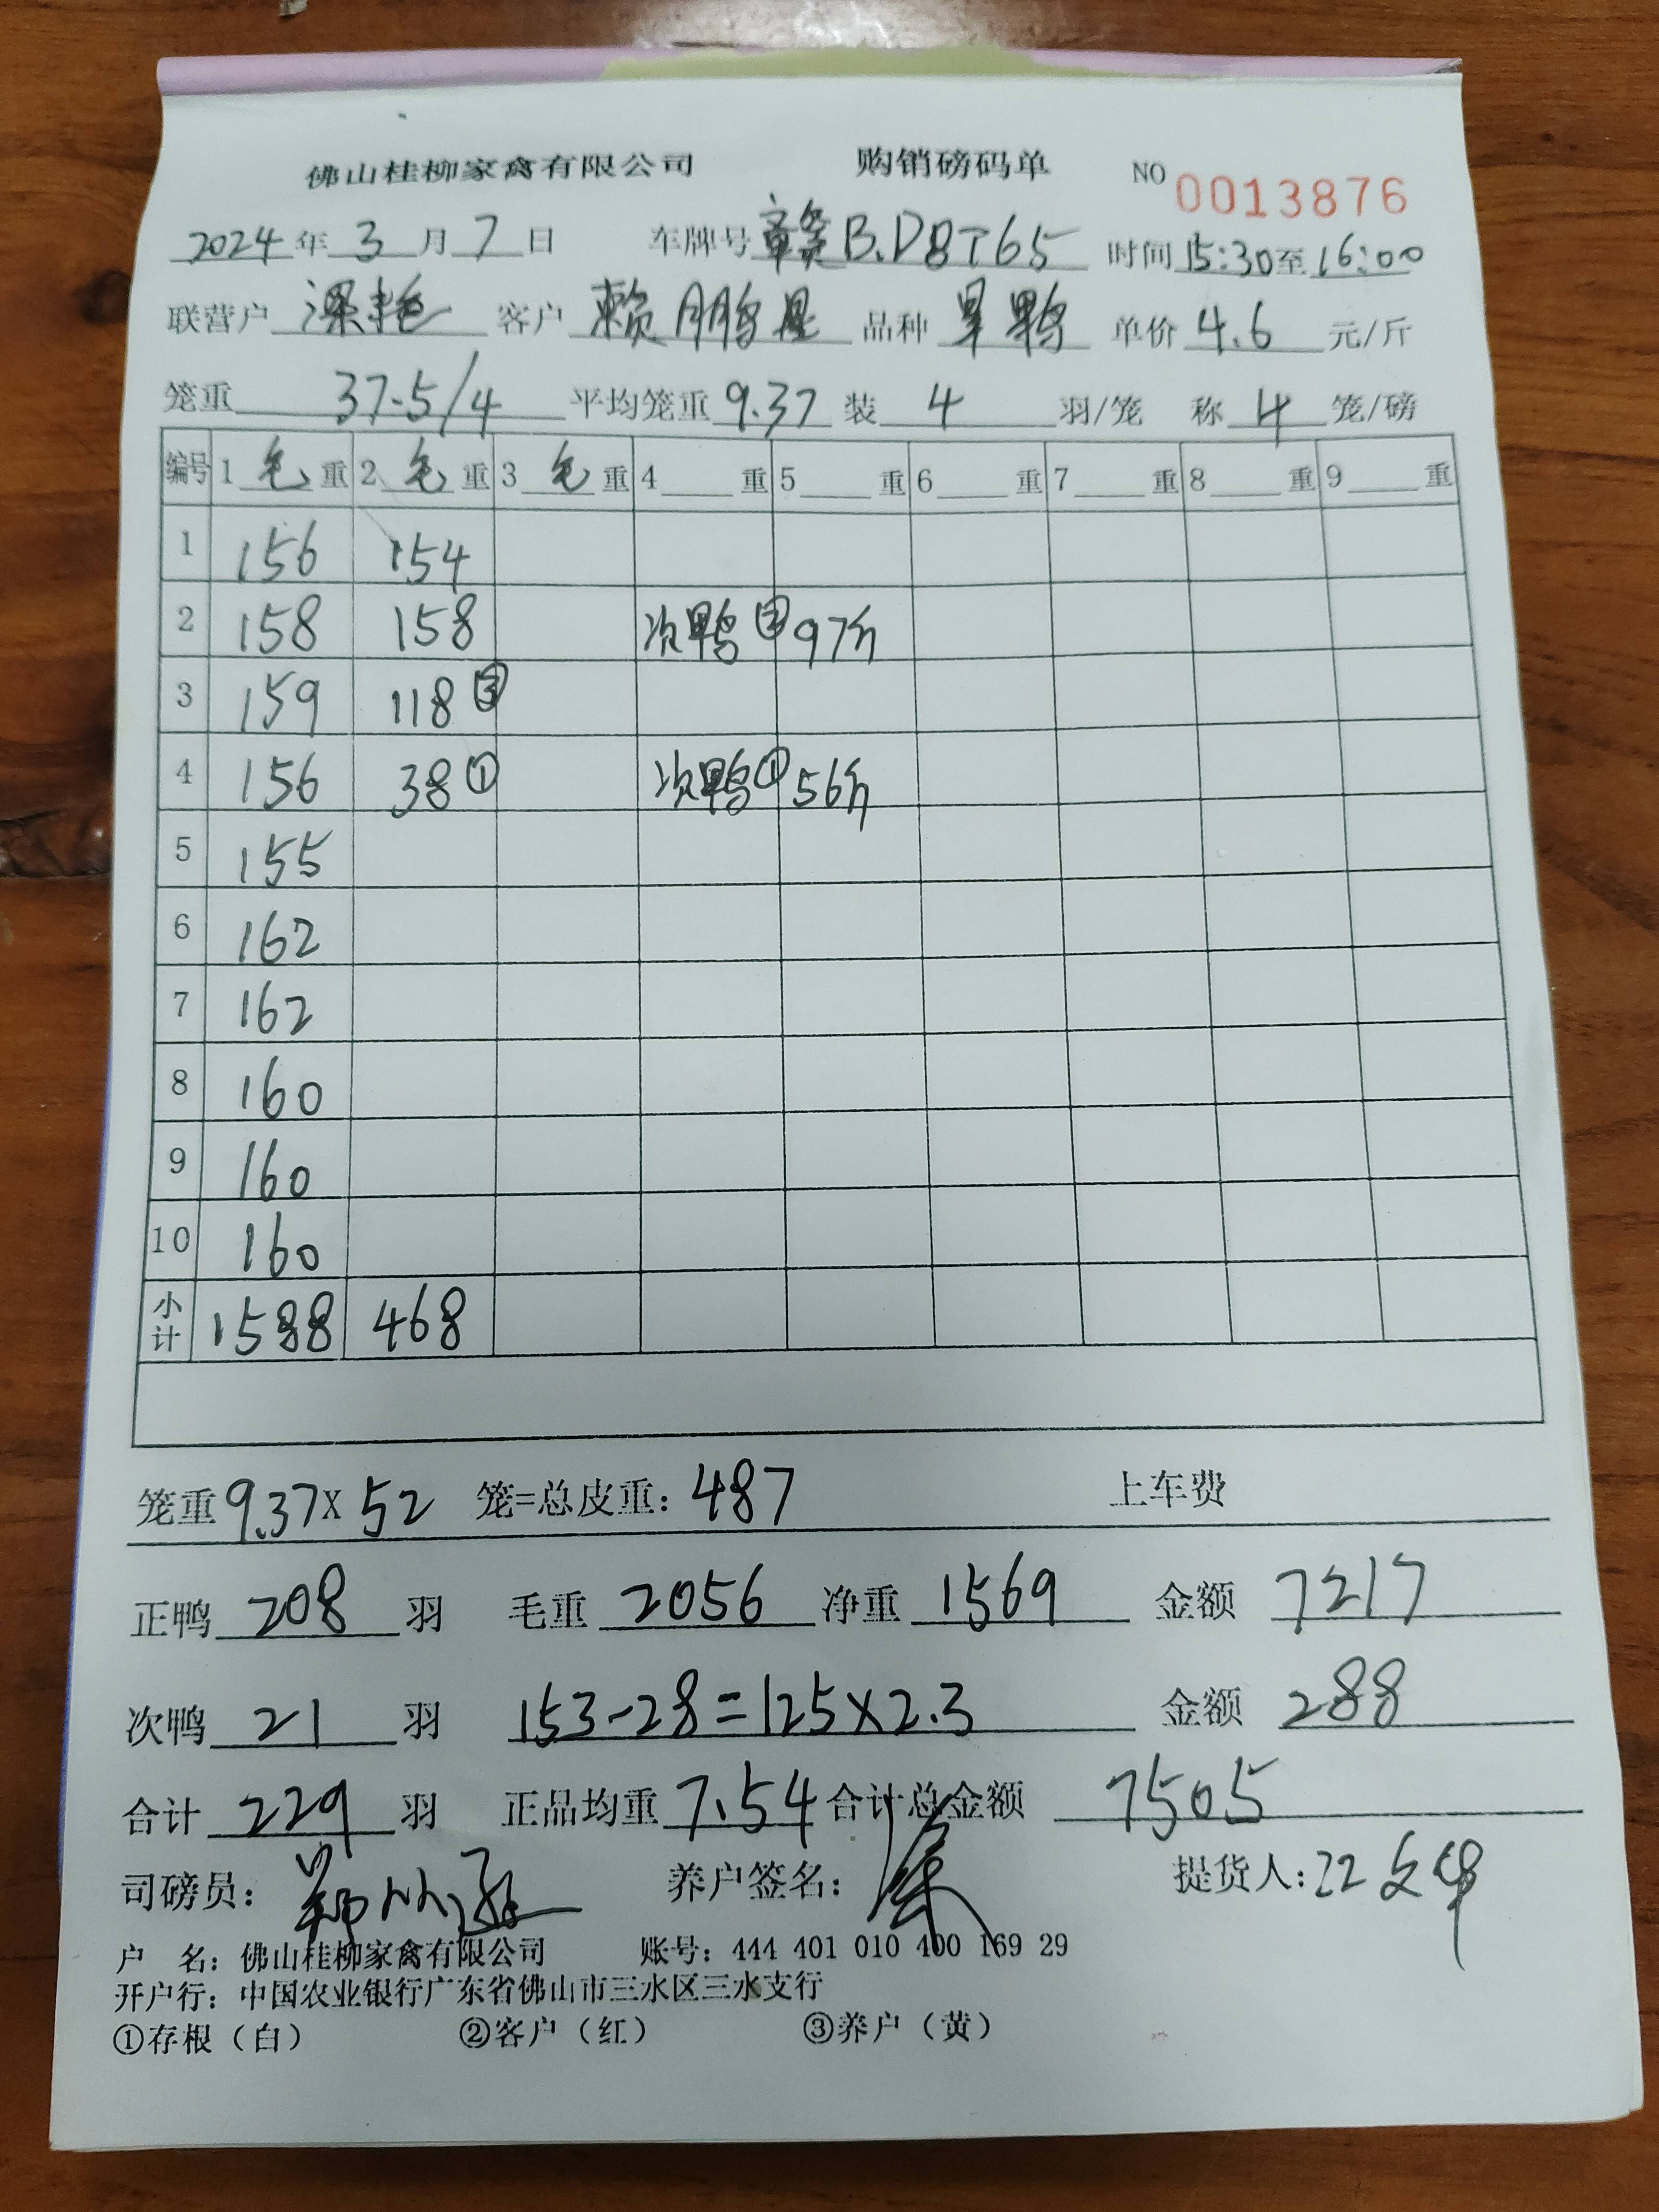 佛山桂柳家禽有限公司 购销磅码单 NO 0013876
2024年3月7日 车牌号 B.D8T65 时间15:30至16:00
联营户 客户 赖鹏星 品种 旱鸭 单价4.6元/斤
笼重37.5/4 平均笼重9.37 装4羽/笼 称4笼/磅
编号 1毛重 2毛重 3毛重 4重 5重 6重 7重 8重 9重
1 156 154
2 158 158 次鸭② 97斤
3 159 118③
4 156 38① 次鸭① 56斤
5 155
6 162
7 162
8 160
9 160
10 160
小计 1588 468
笼重9.37X52笼=总皮重:487 上车费
正鸭208羽 毛重2056 净重1569 金额7217
次鸭21羽 153-28=125X2.3 金额288
合计229羽 正品均重7.54 合计总金额7505
司磅员: 养户签名: 提货人:
户 名:佛山桂柳家禽有限公司 账号:444 401 010 400 169 29
开户行:中国农业银行广东省佛山市三水区三水支行
①存根(白) ②客户(红) ③养户(黄)